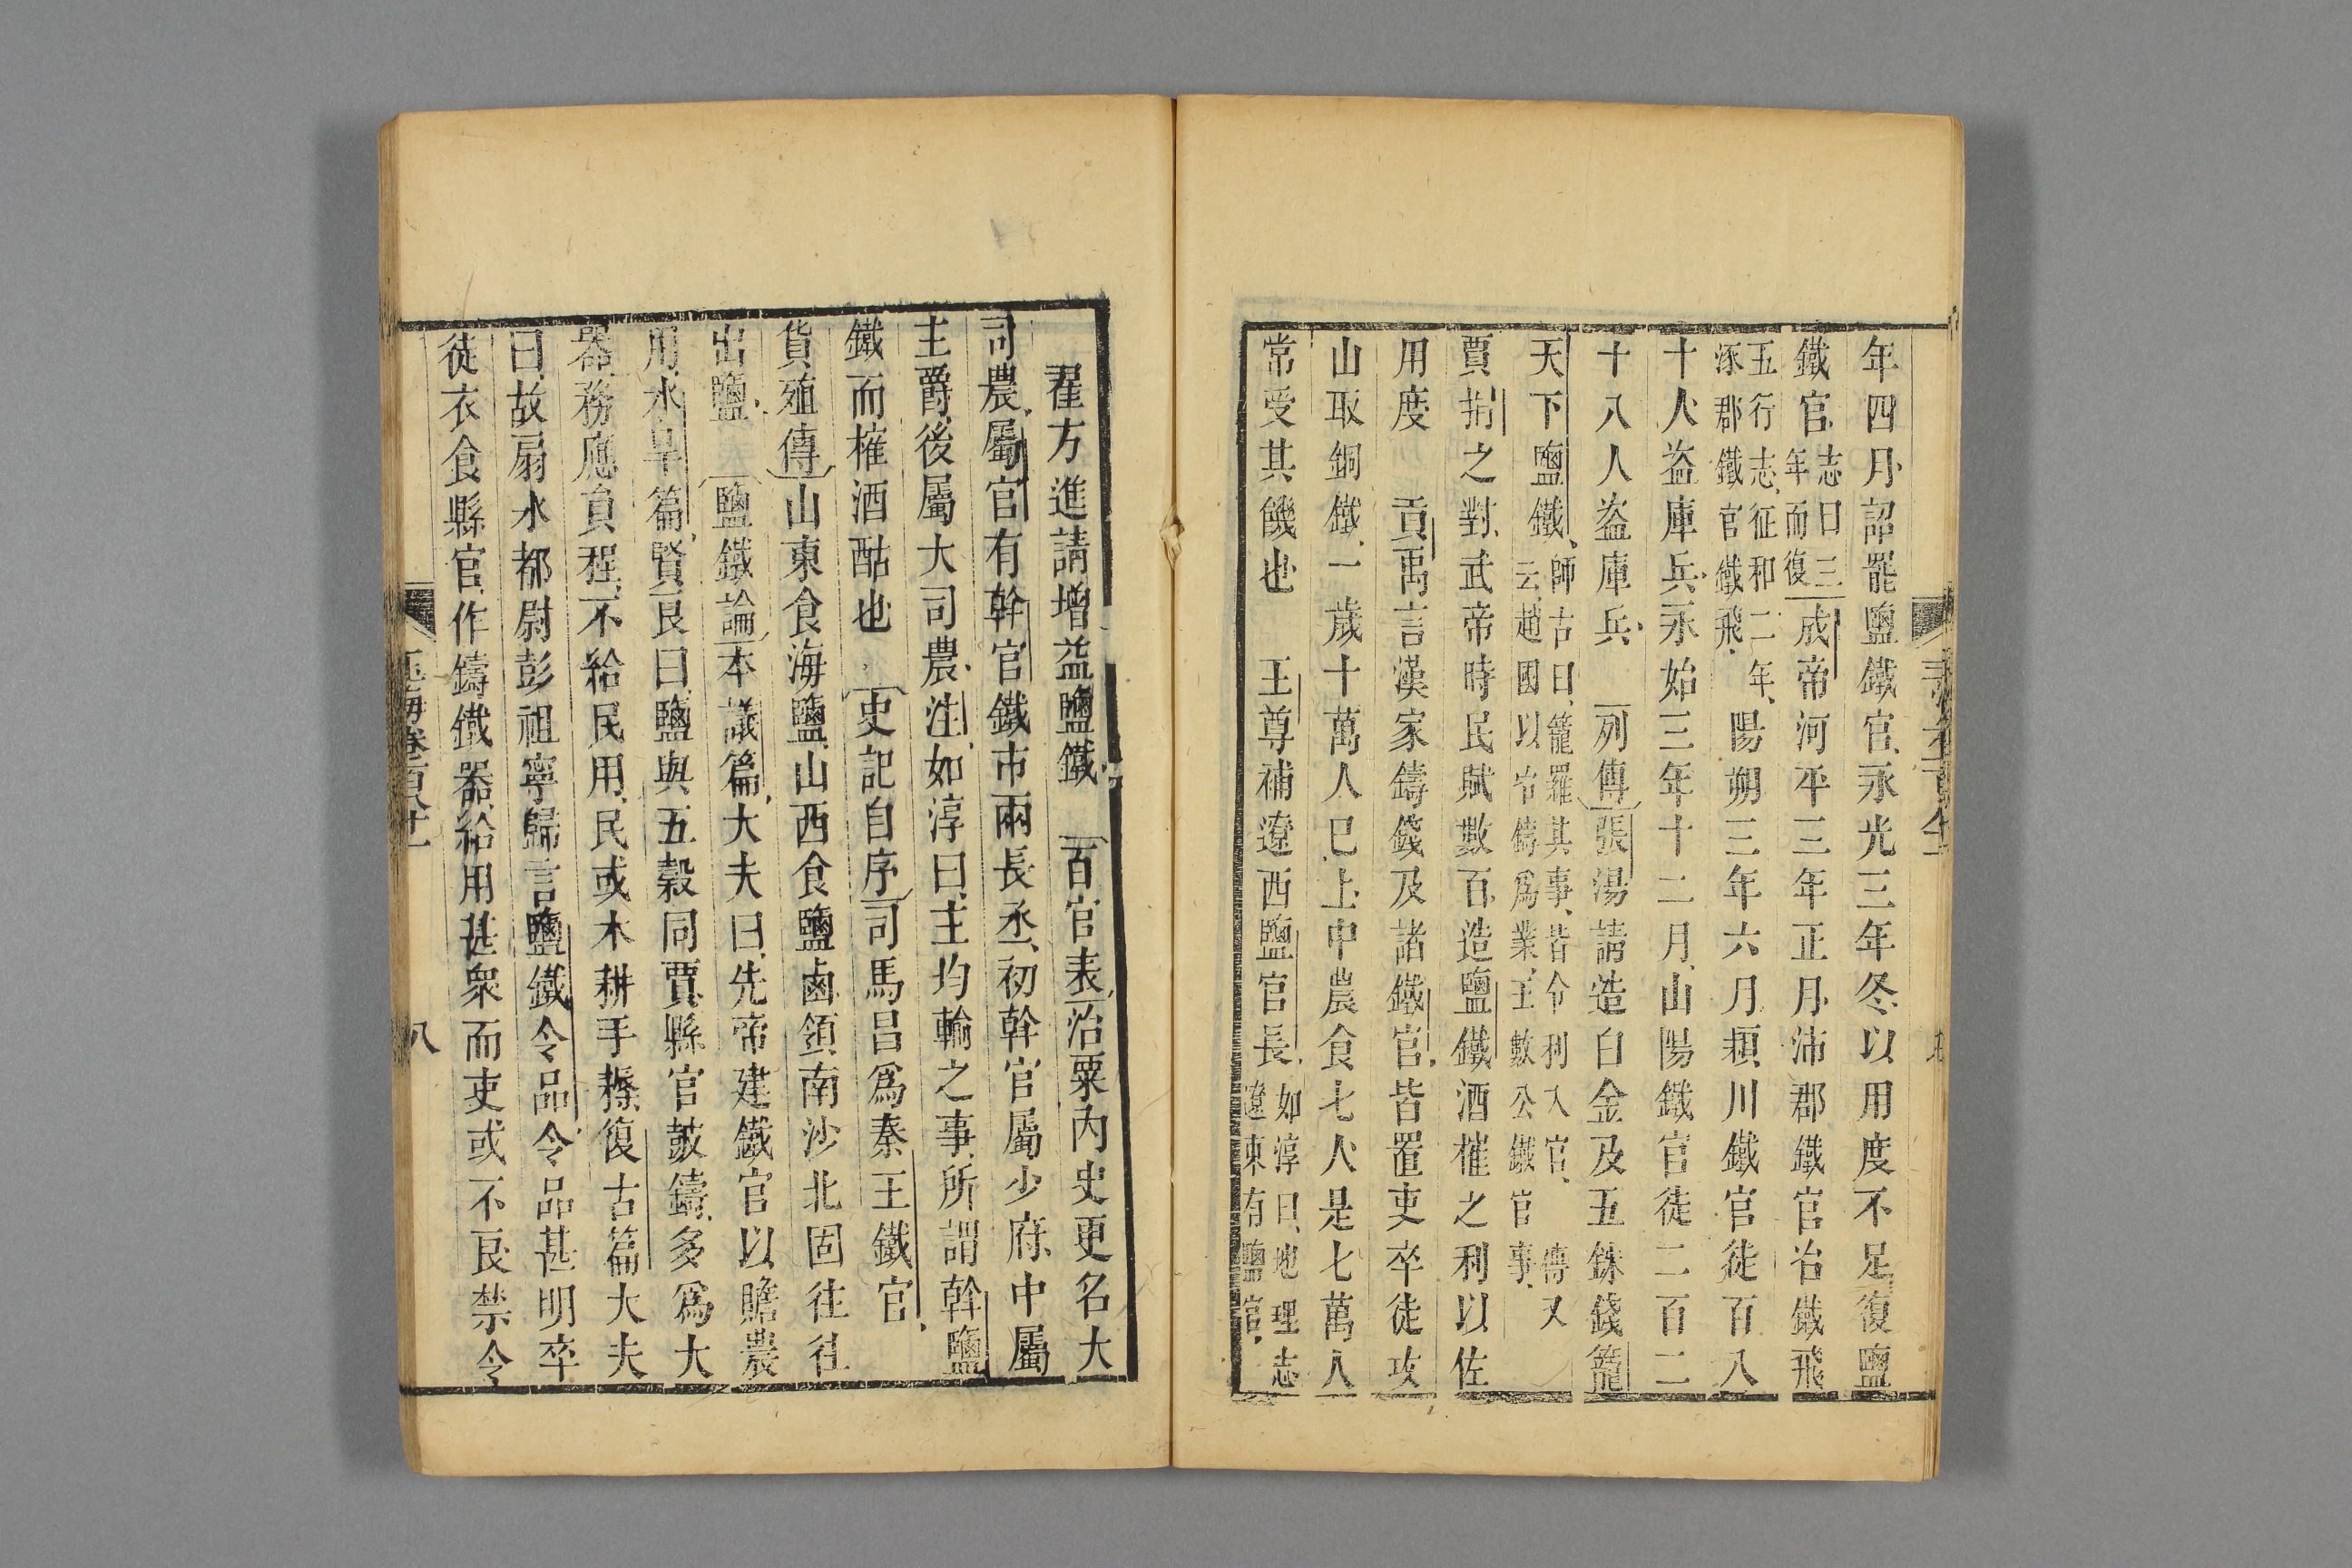 年四月詔罷鹽鐵官永光三年冬以用度不足復鹽
鐵官志曰三年而復成帝河平三年正月沛郡鐵官冶鐵飛
五行志征和二年涿郡鐵官鐵飛陽朔三年六月潁川鐵官徒百八
十人盜庫兵永始三年十二月山陽鐵官徒二百二
十八人盜庫兵 列傳張湯請造白金及五銖錢籠
天下鹽鐵師古曰籠羅其事皆令利入官 傳又云趙國以冶鑄爲業王數公鐵官事
賈捐之對武帝時民賦數百造鹽鐵酒榷之利以佐
用度 貢禹言漢家鑄錢及諸鐵官皆置吏卒徒攻
山取銅鐵一歲十萬人已上中農食七人是七萬人
常受其饑也 王尊補遼西鹽官長如淳曰地理志遼東有鹽官
翟方進請增益鹽鐵 百官表治粟內史更名大
司農屬官有斡官鐵市兩長丞初斡官屬少府中屬
主爵後屬大司農注如淳曰主均輸之事所謂斡鹽
鐵而榷酒酤也 史記自序司馬昌爲秦王鐵官
貨殖傳山東食海鹽山西食鹽鹵領南沙北固往往
出鹽 鹽鐵論本議篇大夫曰先帝建鐵官以贍農
用水旱篇賢良曰鹽與五穀同賈縣官鼓鑄多爲大
器務應負程不給民用民或木耕手耨復古篇大夫
曰故扇水都尉彭祖寧歸言鹽鐵令品令品甚明卒
徒衣食縣官作鑄鐵器給用甚衆而吏或不良禁令
玉海卷百八十一
八